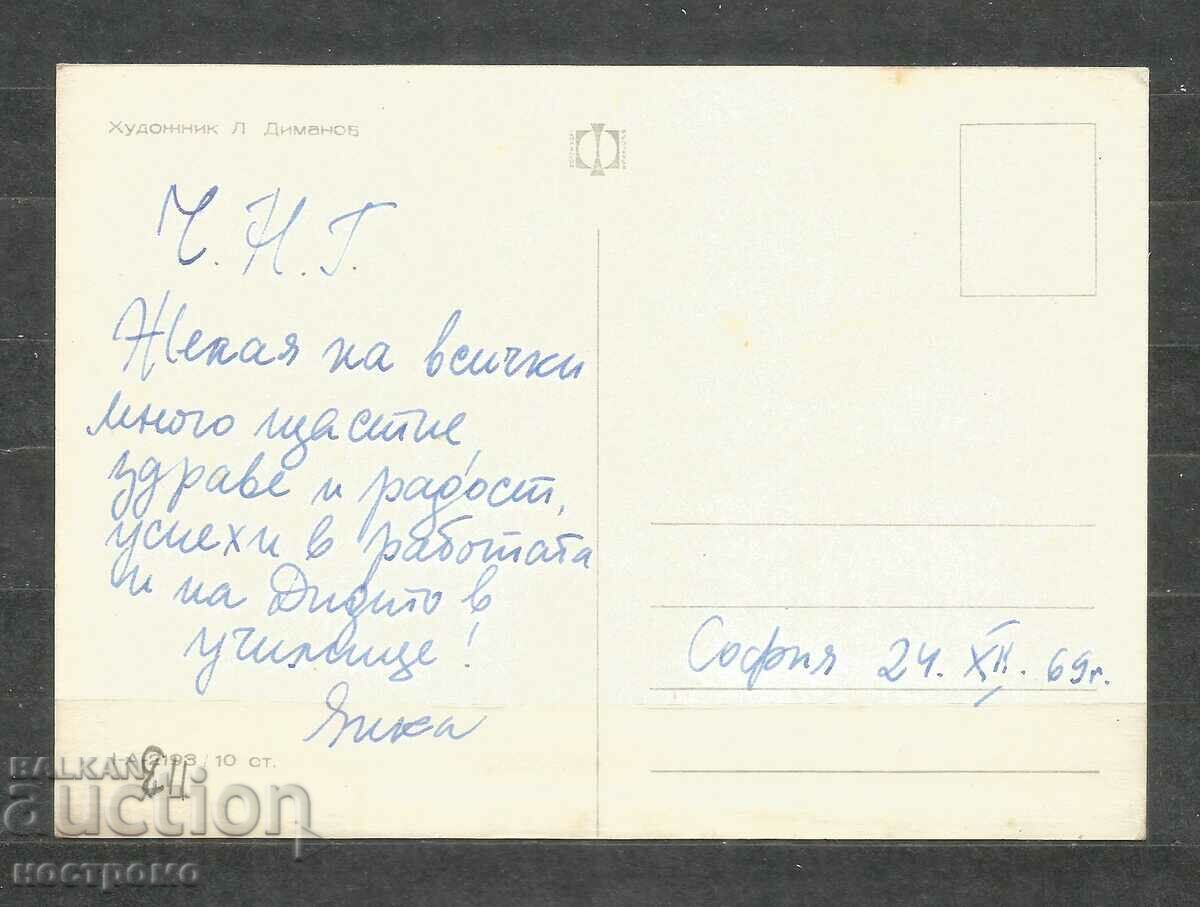 Художник Л Диманов
Ч. Н. Г.
Желая на всички
много щастие,
здраве и радост,
успехи в работата
и на Дидито в
училище!
Янка
София 24. XII. 69г.
I-А-2193/10 ст.
BALKAN
auction
ностромо